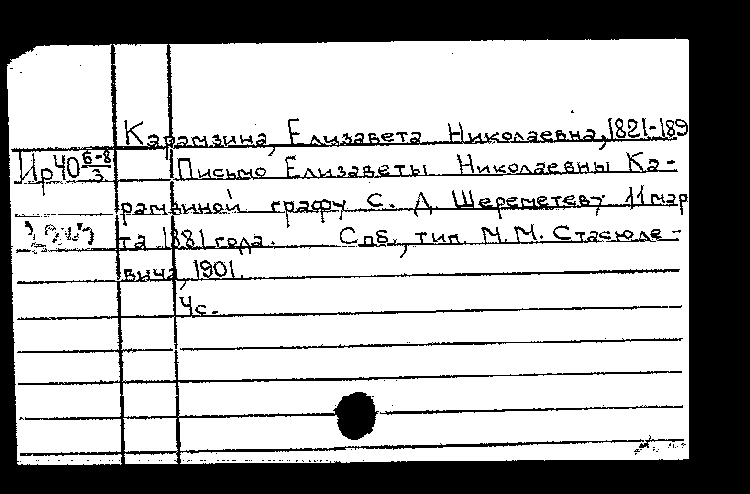 Карамзина, Елизавета Николаевна, 1821-189
Ир40 6-8/3 Письмо Елизаветы Николаевны Ка-
рамзиной графу С. Д. Шереметеву 11 мар
та 1881 года. Спб., тип. М. М. Стасюле-
вича, 1901.
4с.